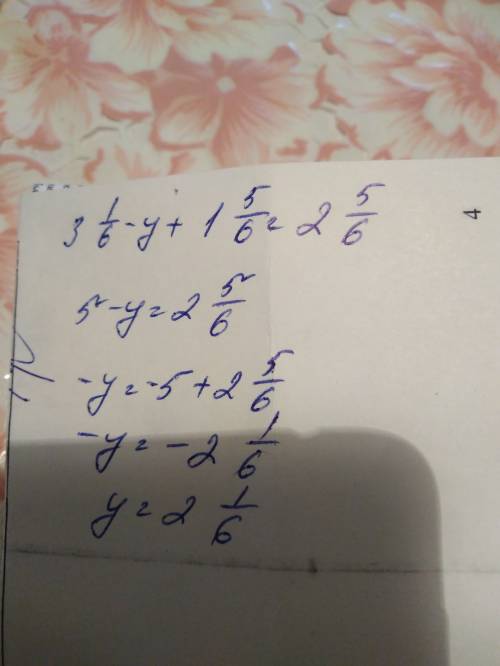 3 1/6 - y + 1 5/6 = 2 5/6
4
5 - y = 2 5/6
-y = -5 + 2 5/6
-y = -2 1/6
y = 2 1/6